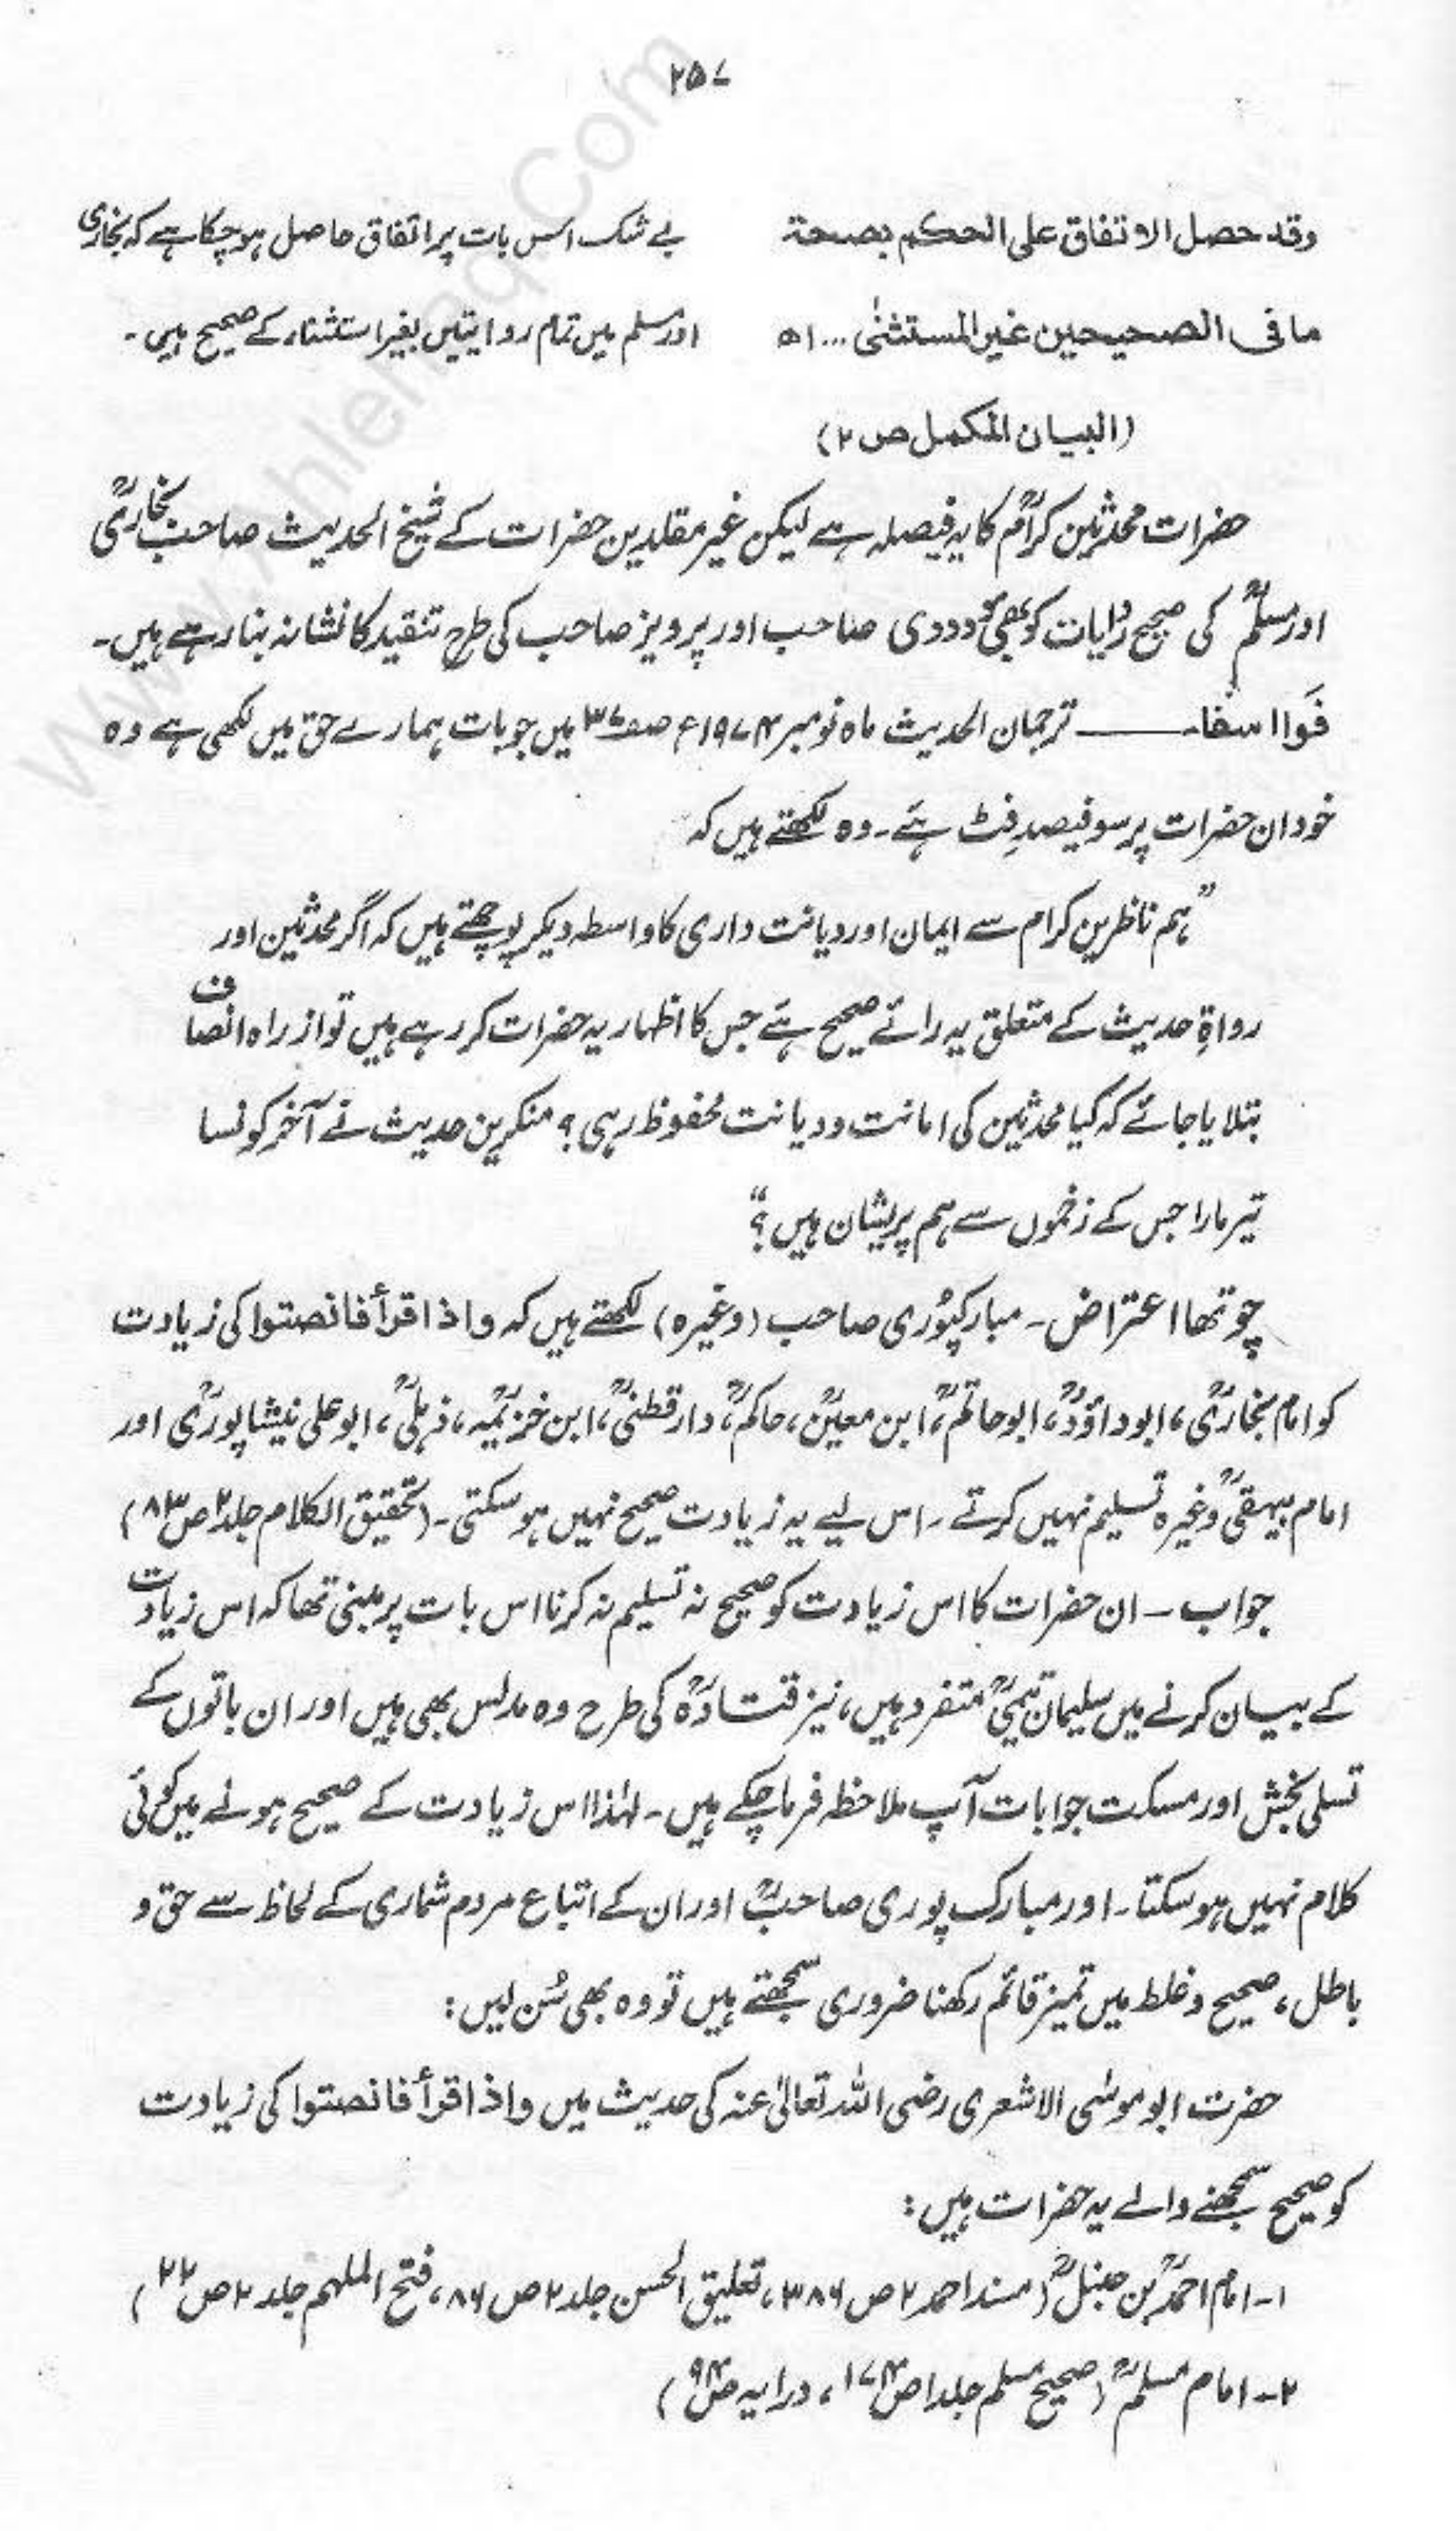 ۲۵۷
وقد حصل الاتفاق على الحكم بصحة بے شک اس بات پر اتفاق حاصل ہو چکا ہے کہ بخاری
ما فى الصحيحين غير المستثنىٰ ...اھ اور مسلم میں تمام روایتیں بغیر استثناء کے صحیح ہیں۔
(البیان المکمل ص ۲)
حضرات محدثین کرامؒ کا یہ فیصلہ ہے لیکن غیر مقلدین حضرات کے شیخ الحدیث صاحب بخاریؒ
اور مسلمؒ کی صحیح روایات کو بھی مودودی صاحب اور پرویز صاحب کی طرح تنقید کا نشانہ بنا رہے ہیں۔
فَوَا اسفاہ ــــــ ترجمان الحدیث ماہ نومبر ۱۹۷۴ء صفـ۳۷ میں جو بات ہمارے حق میں لکھی ہے وہ
خود ان حضرات پر سو فیصد فِٹ ہے۔ وہ لکھتے ہیں کہ
”ہم ناظرین کرام سے ایمان اور دیانت داری کا واسطہ دیکر پوچھتے ہیں کہ اگر محدثین اور
رواةِ حدیث کے متعلق یہ رائے صحیح ہے جس کا اظہار یہ حضرات کر رہے ہیں تو از راہ انصاف
بتلایا جائے کہ کیا محدثین کی امانت و دیانت محفوظ رہی؟ منکرین حدیث نے آخر کونسا
تیر مارا جس کے زخموں سے ہم پریشان ہیں؟“
چوتھا اعتراض۔ مبارکپُوری صاحب (وغیرہ) لکھتے ہیں کہ واذا قرأ فانصتوا کی زیادت
کو امام بخاریؒ، ابوداؤدؒ، ابوحاتمؒ، ابن معینؒ، حاکمؒ، دارقطنیؒ، ابن خزیمہؒ، ذہلیؒ، ابوعلی نیشاپوریؒ اور
امام بیہقیؒ وغیرہ تسلیم نہیں کرتے۔ اس لیے یہ زیادت صحیح نہیں ہو سکتی۔ (تحقیق الکلام جلد۲ ص۸۳)
جواب۔ ان حضرات کا اس زیادت کو صحیح نہ تسلیم نہ کرنا اس بات پر مبنی تھا کہ اس زیادت
کے بیان کرنے میں سلیمان تیمیؒ متفرد ہیں، نیز قتادہؒ کی طرح وہ مدلس بھی ہیں اور ان باتوں کے
تسلی بخش اور مسکت جوابات آپ ملاحظہ فرما چکے ہیں۔ لہٰذا اس زیادت کے صحیح ہونے میں کوئی
کلام نہیں ہو سکتا۔ اور مبارک پوری صاحبؒ اور ان کے اتباع مردم شماری کے لحاظ سے حق و
باطل، صحیح و غلط میں تمیز قائم رکھنا ضروری سمجھتے ہیں تو وہ بھی سُن لیں:
حضرت ابوموسٰی الاشعری رضی اللہ تعالیٰ عنہ کی حدیث میں واذا قرأ فانصتوا کی زیادت
کو صحیح سمجھنے والے یہ حضرات ہیں:
۱۔ امام احمدؒ بن حنبلؒ (مسند احمد ۲ ص ۳۸۶، تعلیق الحسن جلد ۲ ص ۸۶، فتح الملہم جلد ۲ ص ۲۲)
۲۔ امام مسلمؒ (صحیح مسلم جلد ۱ ص ۱۷۴، درایہ ص ۹۴)
www.Ahlehaq.Com